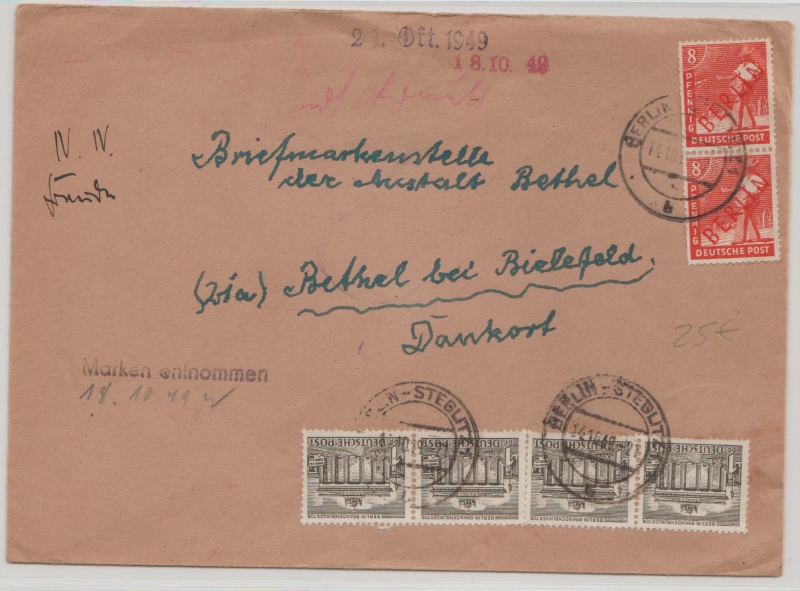 21. Okt. 1949
18.10. 49
IV. IV.
Briefmarkenstelle
der Anstalt Bethel
(21a) Bethel bei Bielefeld.
Dankort
25€
Marken entnommen
18.10.49
8
PFENNIG
BERLIN
DEUTSCHE POST
8
PFENNIG
BERLIN
DEUTSCHE POST
BERLIN
b
BERLIN-STEGLITZ
BERLIN-STEGLITZ
14.10.49
DEUTSCHE POST
BERLIN BRANDENBURGER TOR
DEUTSCHE POST
BERLIN BRANDENBURGER TOR
DEUTSCHE POST
BERLIN BRANDENBURGER TOR
DEUTSCHE POST
BERLIN BRANDENBURGER TOR